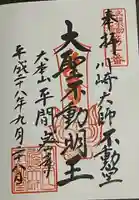 奉拝 川崎大師 不動堂
大聖不動明王
大本山 平間寺
平成十八年九月二十八日